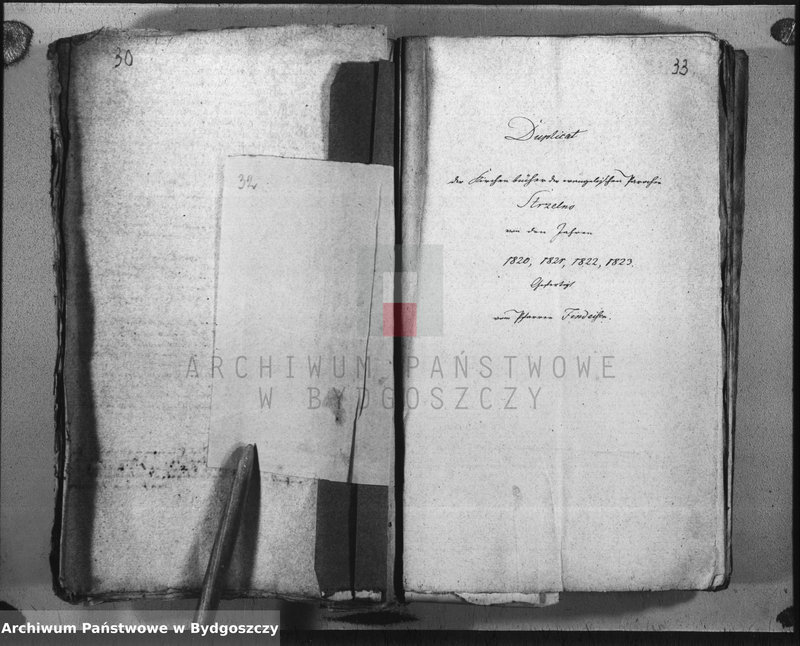 30
32
33
Duplicat
der Kirchenbücher der evangelischen Parochie
Strzelno
von den Jahren
1820, 1821, 1822, 1823.
Gefertigt
vom Pfarrer
ARCHIWUM PAŃSTWOWE
W BYDGOSZCZY
Archiwum Państwowe w Bydgoszczy